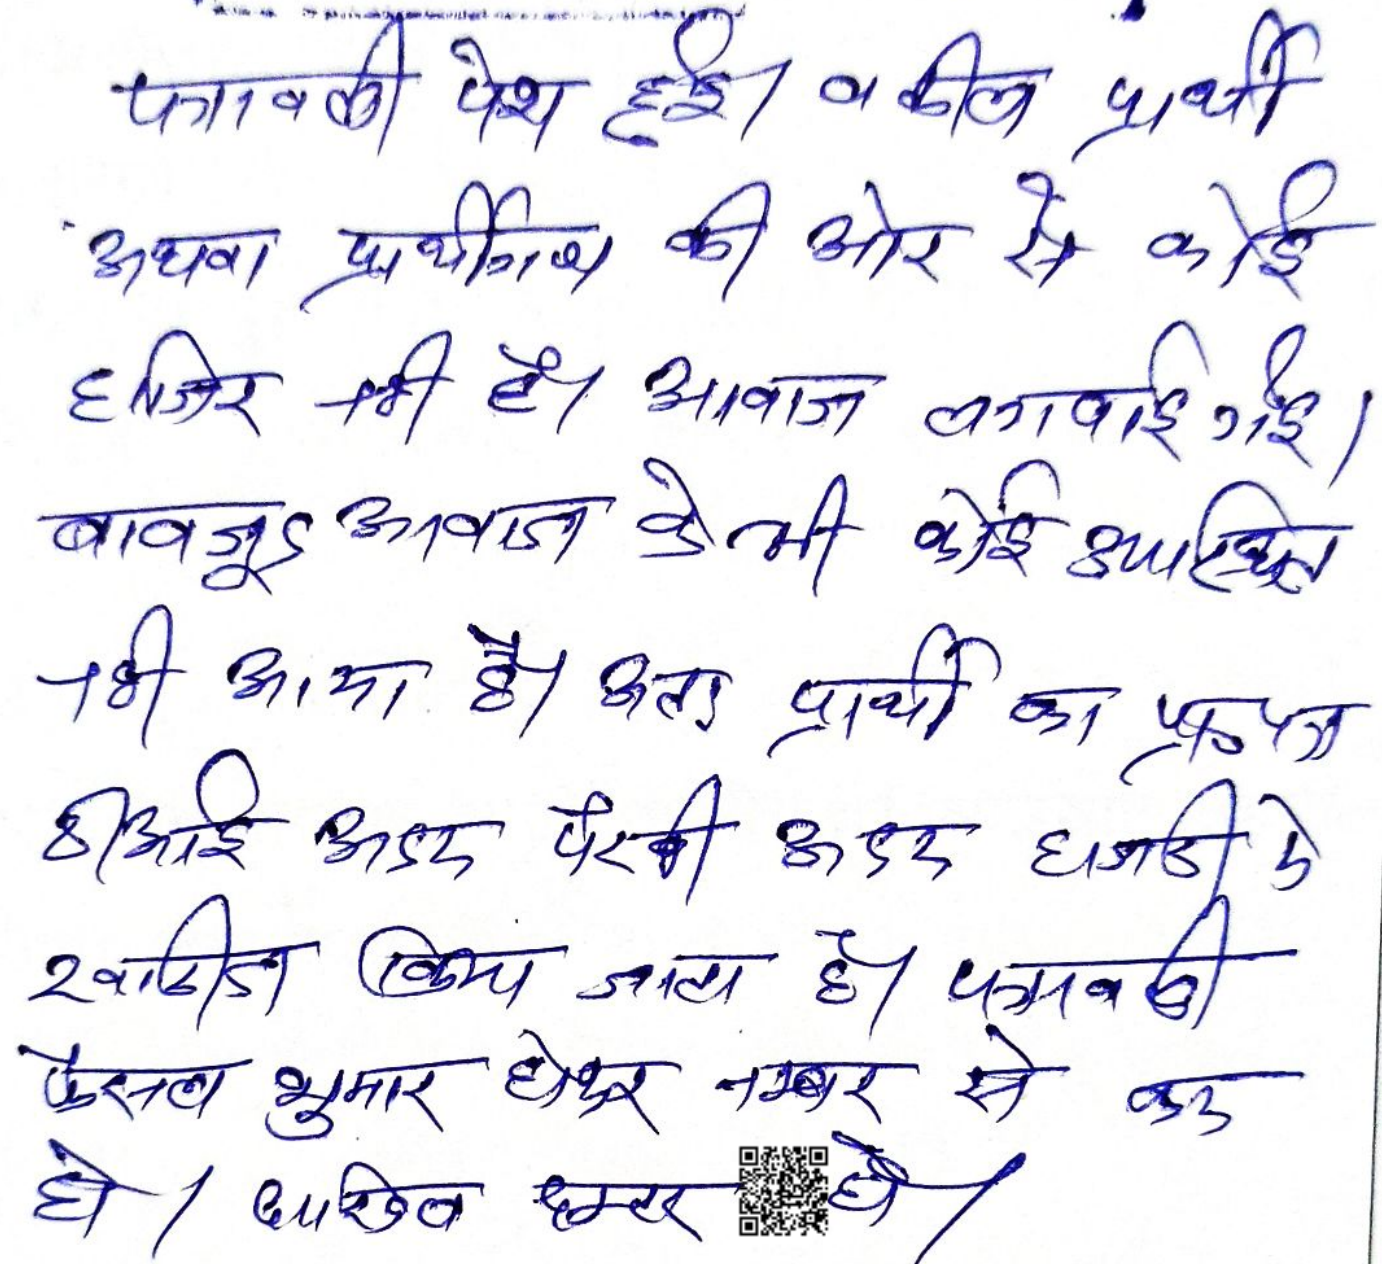 पत्रावली पेश हुई। वकील प्रार्थी
अथवा प्रार्थीगण की ओर से कोई
हाजिर नही है। आवाज लगवाई गई।
बावजूद आवाज के भी कोई उपस्थित
नही आया है। अतः प्रार्थी का प्रा०पत्र
टीआई अदम पैरवी अदम हाजरी मे
खारीज किया जाता है। पत्रावली
फैसल शुमार होकर नम्बर से कम
हो। दाखिल दफ्तर हो।